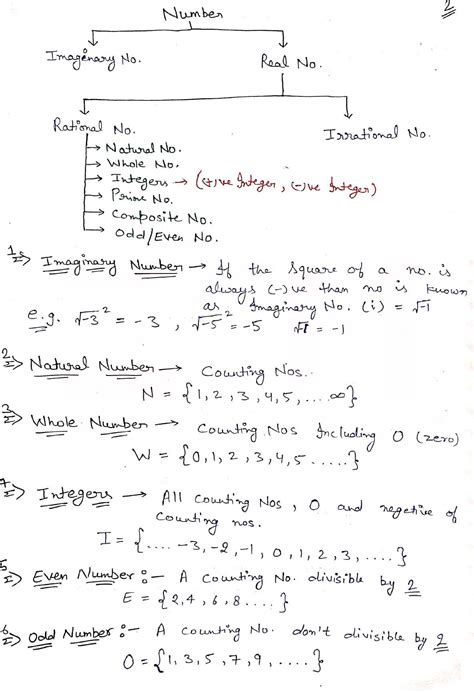 2
Number
Imaginary No.
Real No.
Rational No.
Irrational No.
→ Natural No.
→ Whole No.
→ Integers → (+)ve Integer, (-)ve Integer)
→ Prime No.
→ Composite No.
→ Odd/Even No.
1⇒ Imaginary Number → If the square of a no. is
always (-)ve than no is known
as Imaginary No. (i) = √-1
e.g. √-3² = -3 , √-5² = -5 √1 = -1
2⇒ Natural Number → Counting Nos.
N = {1, 2, 3, 4, 5, .... ∞}
3⇒ Whole Number → Counting Nos Including 0 (zero)
W = {0, 1, 2, 3, 4, 5 .....}
⇒ Integers → All counting Nos, 0 and negetive of
counting nos.
I = {.... -3, -2, -1, 0, 1, 2, 3, ....}
5⇒ Even Number :- A counting No. divisible by 2
E = {2, 4, 6, 8 ....}
6⇒ Odd Number :- A counting No. don't divisible by 2
O = {1, 3, 5, 7, 9, ....}